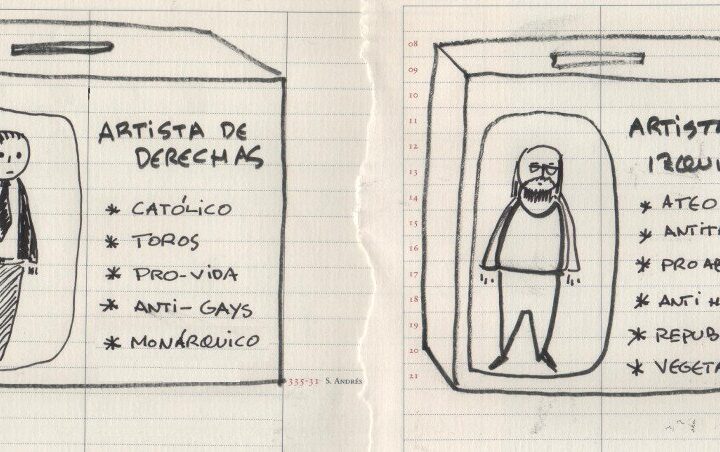 ARTISTA DE
DERECHAS
* CATÓLICO
* TOROS
* PRO-VIDA
* ANTI-GAYS
* MONÁRQUICO
335-31 S. ANDRÉS
08
09
10
11
12
13
14
15
16
17
18
19
20
21
ARTIST
IZQUI
* ATEO
* ANTIT
* PROAB
* ANTI
* REPUB
* VEGETA